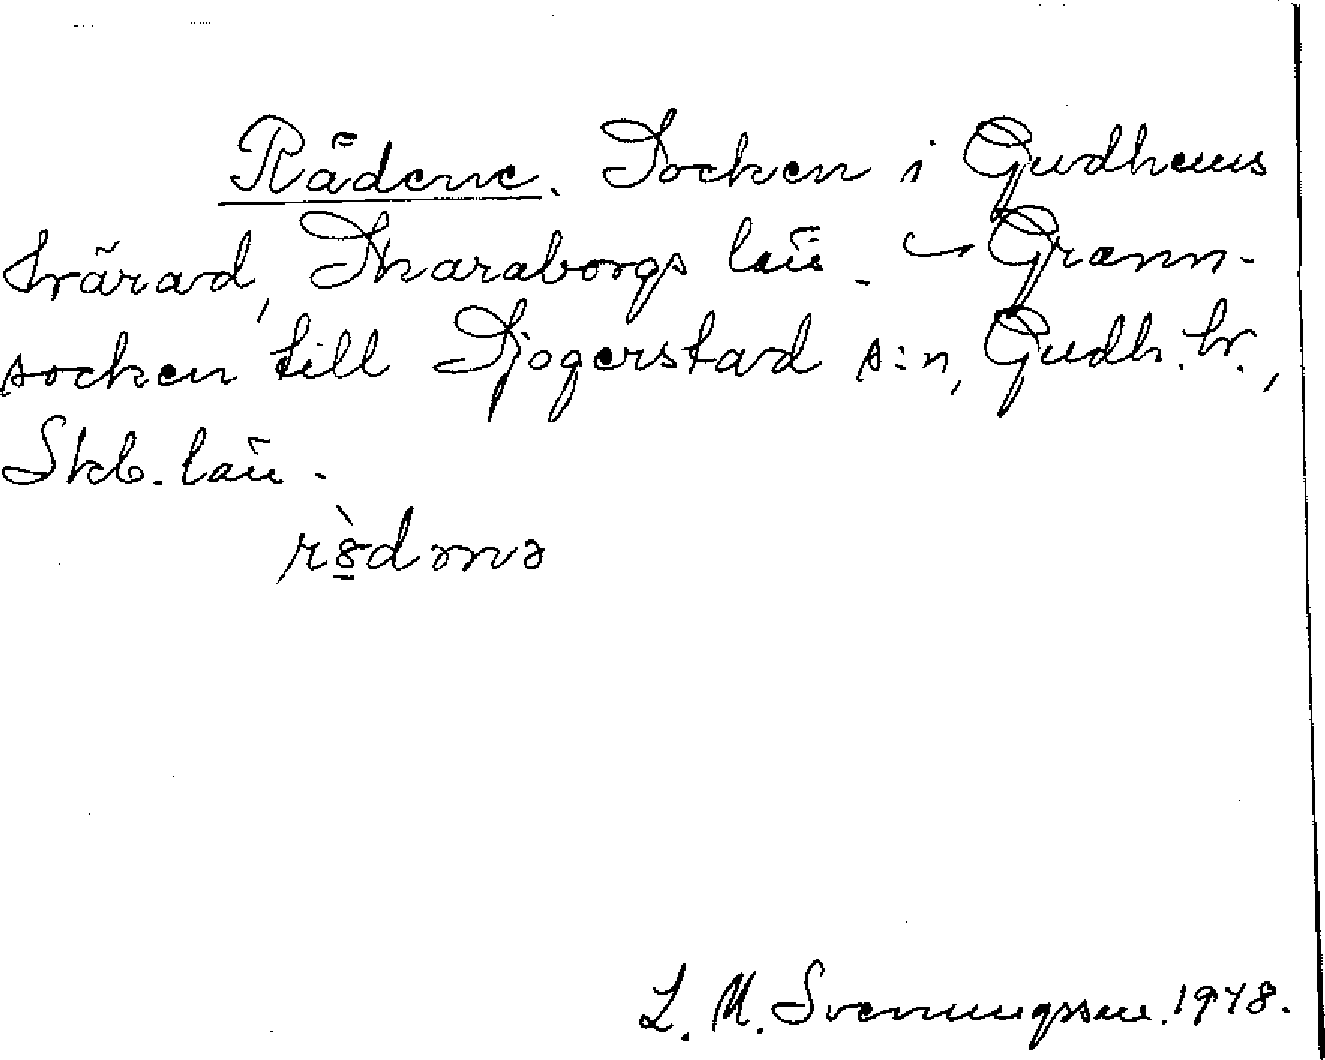 Rådene. Socken i Gudhems
härad, Skaraborgs län. – Grann-
socken till Djogerstad s:n, Gudh. hr.,
Skb. län.
L. M. Svenungsson. 1948.